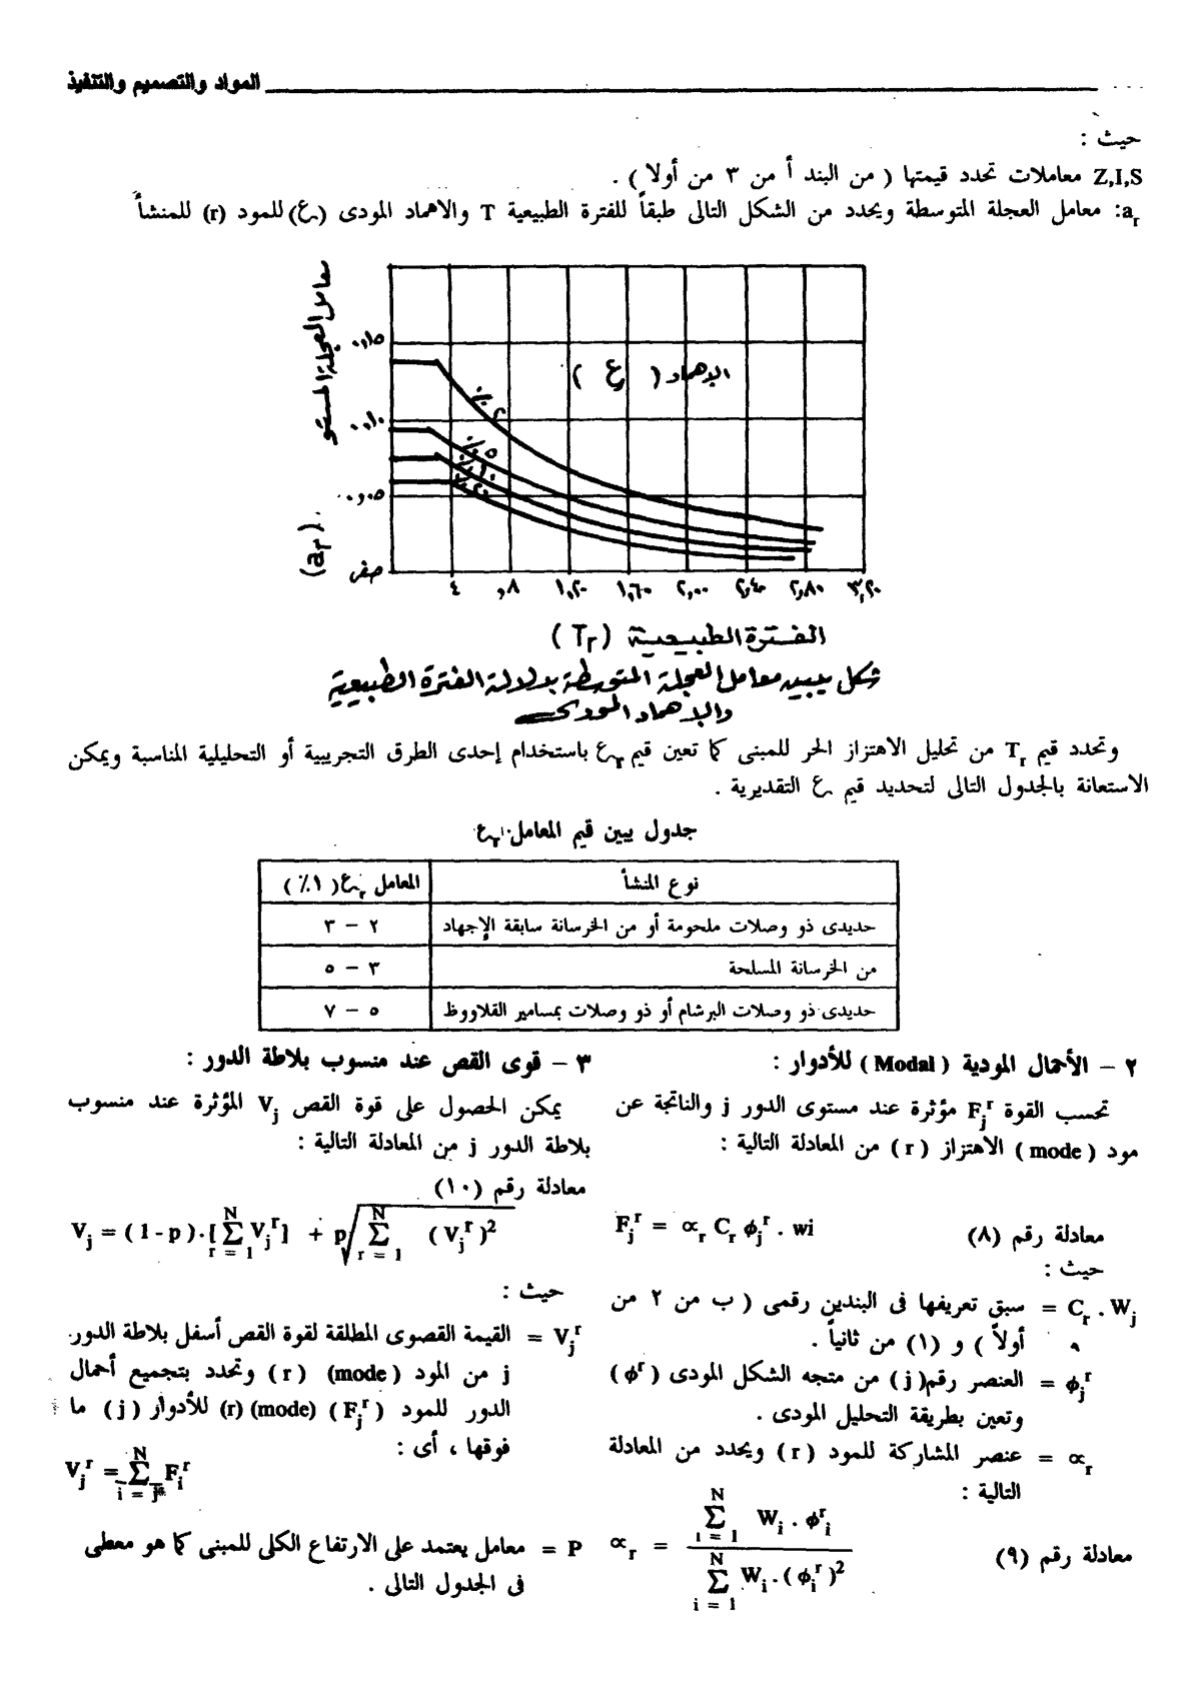 المواد والتصميم والتنفيذ
حيث :
Z,I,S معاملات تحدد قيمتها ( من البند أ من ٣ من أولا ) .
a_r: معامل العجلة المتوسطة ويحدد من الشكل التالى طبقاً للفترة الطبيعية T والاهماد المودى (ع) للمود (r) للمنشأ
معامل العجلة المتو
(ar).
٠,١٥
٠,١٠
٠,٠٥
صفر
الاهماد ( ع )
٢ ٪
٥ ٪
١٠ ٪
٢٠ ٪
٤ ٨, ١,٢٠ ١,٦٠ ٢,٠٠ ٢,٤٠ ٢,٨٠ ٣,٢٠
الفترة الطبيعية (Tr)
شكل يبين معامل العجلة المتوسطة بدلالة الفترة الطبيعية
والاهماد المودى
وتحدد قيم T_r من تحليل الاهتزاز الحر للمبنى كما تعين قيم ع_r باستخدام إحدى الطرق التجريبية أو التحليلية المناسبة ويمكن
الاستعانة بالجدول التالى لتحديد قيم ع التقديرية .
جدول يبين قيم المعامل ع_r
نوع المنشأ المعامل ع_r ( ١٪ )
حديدى ذو وصلات ملحومة أو من الخرسانة سابقة الإجهاد ٢ – ٣
من الخرسانة المسلحة ٣ – ٥
حديدى ذو وصلات البرشام أو ذو وصلات بمسامير القلاووظ ٥ – ٧
٢ – الأحمال المودية ( Modal ) للأدوار :
تحسب القوة F_j^r مؤثرة عند مستوى الدور j والناتجة عن
مود ( mode ) الاهتزاز ( r ) من المعادلة التالية :
معادلة رقم (٨) F_j^r = ∝_r C_r ϕ_j^r . wi
حيث :
C_r . W_j = سبق تعريفها فى البندين رقمى ( ب من ٢ من
أولاً ) و (١) من ثانياً .
ϕ_j^r = العنصر رقم( j ) من متجه الشكل المودى ( ϕ^r )
وتعين بطريقة التحليل المودى .
∝_r = عنصر المشاركة للمود ( r ) ويحدد من المعادلة
التالية :
معادلة رقم (٩) ∝_r = \frac{\sum_{i = 1}^{N} W_i . ϕ_i^r}{\sum_{i = 1}^{N} W_i . ( ϕ_i^r )^2}
٣ – قوى القص عند منسوب بلاطة الدور :
يمكن الحصول على قوة القص V_j المؤثرة عند منسوب
بلاطة الدور j من المعادلة التالية :
معادلة رقم (١٠)
V_j = ( 1 - p ) . [ \sum_{r = 1}^{N} V_j^r ] + p \sqrt{\sum_{r = 1}^{N} ( V_j^r )^2}
حيث :
V_j^r = القيمة القصوى المطلقة لقوة القص أسفل بلاطة الدور
j من المود ( mode ) ( r ) وتحدد بتجميع أحمال
الدور للمود ( F_j^r ) (mode) (r) للأدوار ( j ) ما
فوقها ، أى :
V_j^r = \sum_{i = j}^{N} F_i^r
P = معامل يعتمد على الارتفاع الكلى للمبنى كما هو معطى
فى الجدول التالى .